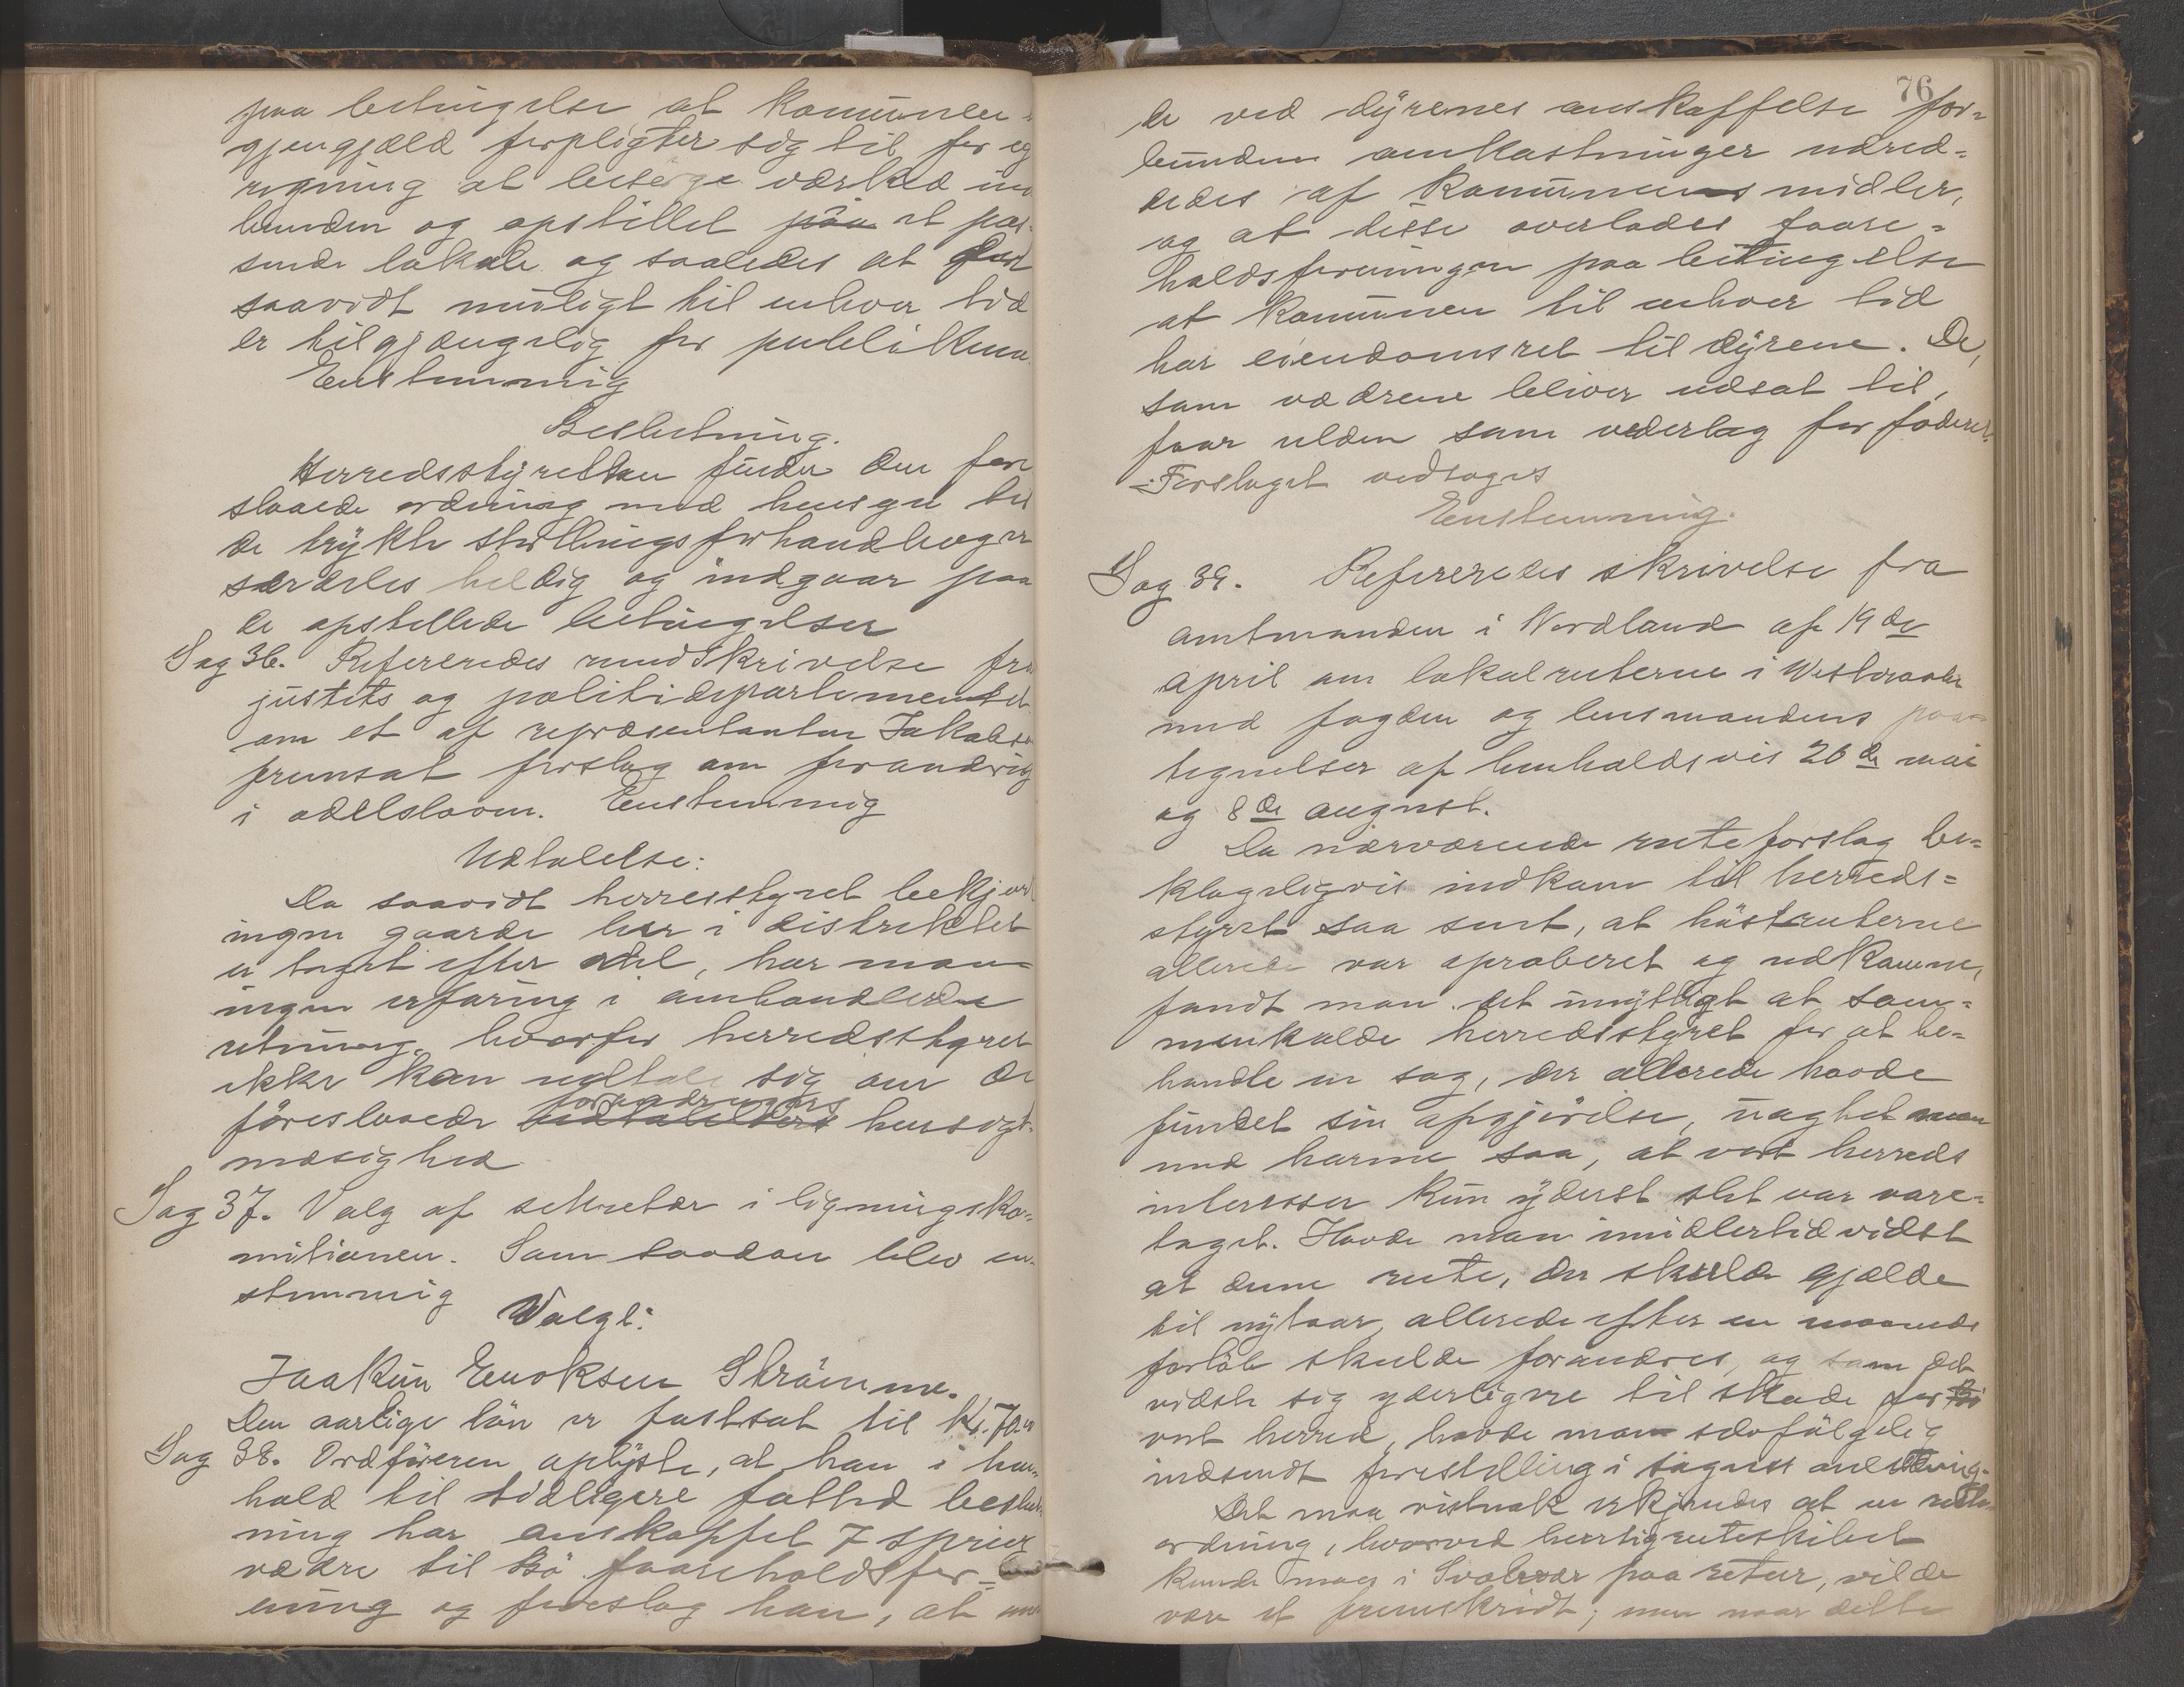 paa betingelse at kommunen
gjengjæld forpligter sig til for eg
regning at besørge værket ind
bunden og opstillet paa et pas-
sende lokale og saaledes at det
saavidt muligt til enhver tid
er tilgjængelig for publikum.
Enstemmig
Beslutning.
Herredsstyrelsen finder den fore
slaaede ordning med hensyn til
de trykte stortingsforhandlinger
særdeles heldig og indgaar paa
de opstillede betingelser
Sag 36. Refereredes rundskrivelse fra
justits og politidepartementet
om et af repræsentanten Jakobsen
fremsat forslag om forandring
i odelsloven. Enstemmig
Udtalelse:
Da saavidt herresstyret bekjendt
ingen gaarde her i distriktet
er taget efter odel, har man
ingen erfaring i omhandlede
retning, hvorfor herredsstyret
ikke kan udtale sig om de
foreslaaede forandringers hensigt-
mæsighed
Sag 37. Valg af sekretær i ligningsko-
mitionen. Som saadan blev en-
stemmig
Valgt:
Joakim Enoksen Strømme.
Den aarlige løn er fastsat til Kr. 70.
Sag 38. Ordføreren oplyste, at han i hen-
hold til tidligere fattet beslut-
ning har anskaffet 7 
vædre til Bø faareholdsfor-
ening og foreslog han, at
76
de ved dyrenes anskaffelse for-
bundne omkostninger udred-
edes af kommunens midler,
og at disse overlades faare-
holdsforeningen paa betingelse
at kommunen til enhver tid
har eiendomsret til dyrene. De,
som vædrene bliver udsat til,
faar ulden som vederlag for foderet.
Forslaget vedtoges
Enstemmig.
Sag 39. Refereredes skrivelse fra
amtmanden i Nordland af 19 de
april om lokalruterne i Westeraalen
med fogden og lensmandens paa-
tegnelser af henholdsvis 26 de mai
og 8 de august.
Da nærværende ruteforslag be-
klageligvis indkom til herreds-
styret saa sent, at høstruterne
allerede var aproberet og udkomne,
fandt man det unyttigt at sam-
menkalde herredsstyret for at be-
handle en sag, der allerede havde
fundet sin afgjørelse, uagtet man
med harme saa, at vort herreds
interesser kun yderst slet var vare-
taget. Havde man imidlertid vidst
at denne rute, der skulde gjælde
til nytaar, allerede efter en maaneds
forløb skulde forandres, og som det
vidste sig yderligere til skade for
vort herred, havde man selvfølgelig
indsendt forestilling i sagens anledning.
Det maa vistnok erkjendes at en rute-
ordning, hvorved hurtigruteskibet
kunde naaes i Svolvær paa retur, vilde
være et fremskridt; men naar dette